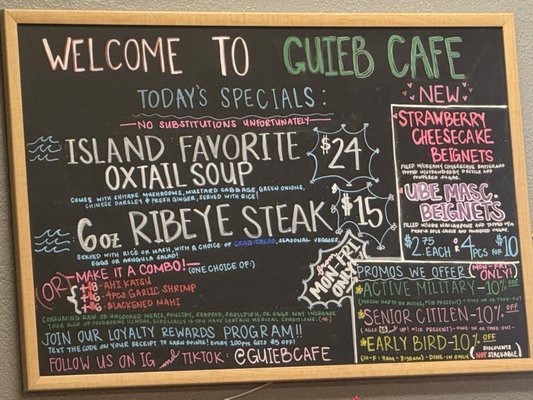 WELCOME TO GUIEB CAFE
TODAY'S SPECIALS:
NO SUBSTITUTIONS UNFORTUNATELY
ISLAND FAVORITE
OXTAIL SOUP
$24
COMES WITH SHIITAKE MUSHROOMS, MUSTARD CABBAGE, GREEN ONIONS,
CHINESE PARSLEY & FRESH GINGER, SERVED WITH RICE!
6oz RIBEYE STEAK
$15
SERVED WITH RICE OR MASH, WITH A CHOICE OF SALAD, SEASONAL VEGGIES,
EGGS OR ARUGULA SALAD!
from MON-FRI ONLY!
(OR) MAKE IT A COMBO! (ONE CHOICE OF)
+$8-AHI KATSU
-4PCS GARLIC SHRIMP
-BLACKENED MAHI
CONSUMING RAW OR UNCOOKED MEATS, POULTRY, SEAFOOD, SHELLFISH, OR EGGS MAY INCREASE
YOUR RISK OF FOODBORNE ILLNESS, ESPECIALLY IF YOU HAVE CERTAIN MEDICAL CONDITIONS.
JOIN OUR LOYALTY REWARDS PROGRAM!!
TEXT THE CODE ON YOUR RECEIPT TO EARN POINTS! EVERY 100PTS GETS $5 OFF!
FOLLOW US ON IG and TIKTOK: @GUIEBCAFE
NEW
STRAWBERRY
CHEESECAKE
BEIGNETS
FILLED W/CREAMY CHEESECAKE BATTER AND
TOPPED W/STRAWBERRY DRIZZLE AND
POWDERED SUGAR.
UBE MASC.
BEIGNETS
FILLED W/UBE MASCARPONE AND TOPPED W/
$2.75 EACH OR 4 PCS FOR $10
PROMOS WE OFFER (MON-FRI ONLY!)
*ACTIVE MILITARY-10% OFF
(PERSON HAS TO BE ACTIVE/ID PRESENT) - DINE-IN OR TAKE-OUT
*SENIOR CITIZEN-10% OFF
(AGES UP! *ID PRESENT) - DINE-IN OR TAKE-OUT
*EARLY BIRD-10% OFF
(M-F: 9AM-) - DINE-IN ONLY
(DISCOUNTS NOT STACKABLE)